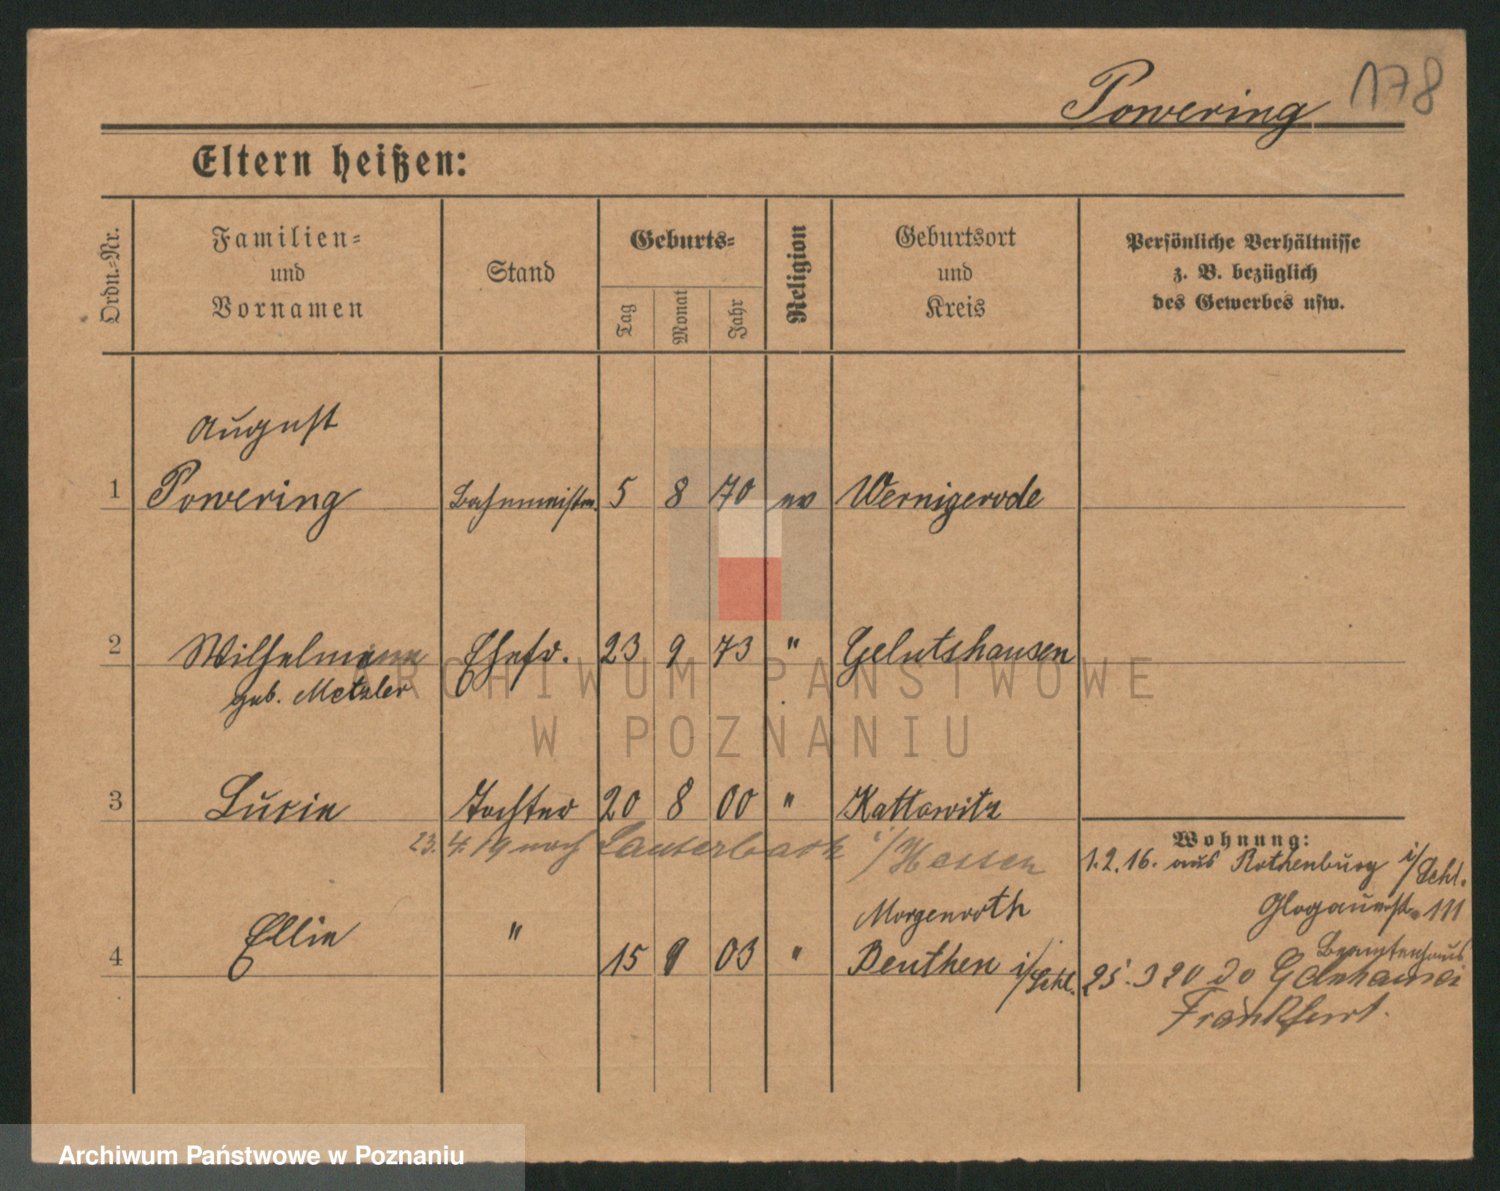 Powering 178
Eltern heißen:
Ordn.-Nr.
Familien-
und
Vornamen
Stand
Geburts-
Tag
Monat
Jahr
Religion
Geburtsort
und
Kreis
Persönliche Verhältnisse
z. B. bezüglich
des Gewerbes usw.
August
1 Powering Bahnmeister 5 8 70 ev Wernigerode
2 Wilhelmine Ehefr. 23 9 73 " Gelnhausen
geb. Metzler
3 Lucie Tochter 20 8 00 " Kattowitz
23. 4. 19 nach Lauterbach i/Hessen
Wohnung:
1. 2. 16. aus Rothenburg i/Schl.
Glogauerstr. 111
Beamtenhaus
Morgenroth
4 Ellie " 15 9 03 " Beuthen i/Schl.
25. 3 20 do Gelnhausen
Frankfurt.
ARCHIWUM PAŃSTWOWE
W POZNANIU
Archiwum Państwowe w Poznaniu